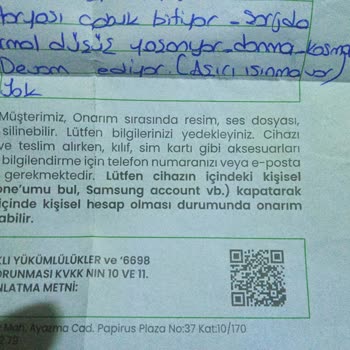 çabuk bitiyor - şarjda
düşüş yaşanıyor - donma - kasma
Devam ediyor. (Aşırı ısınma var)
Yok
Müşterimiz, Onarım sırasında resim, ses dosyası,
silinebilir. Lütfen bilgilerinizi yedekleyiniz. Cihazı
ve teslim alırken, kılıf, sim kartı gibi aksesuarları
bilgilendirme için telefon numaranızı veya e-posta
gerekmektedir. Lütfen cihazın içindeki kişisel
one'umu bul, Samsung account vb.) kapatarak
içinde kişisel hesap olması durumunda onarım
abilir.
KLI YÜKÜMLÜLÜKLER ve '6698
ORUNMASI KVKK NIN 10 VE 11.
NLATMA METNİ:
Mah. Ayazma Cad. Papirus Plaza No:37 Kat:10/170